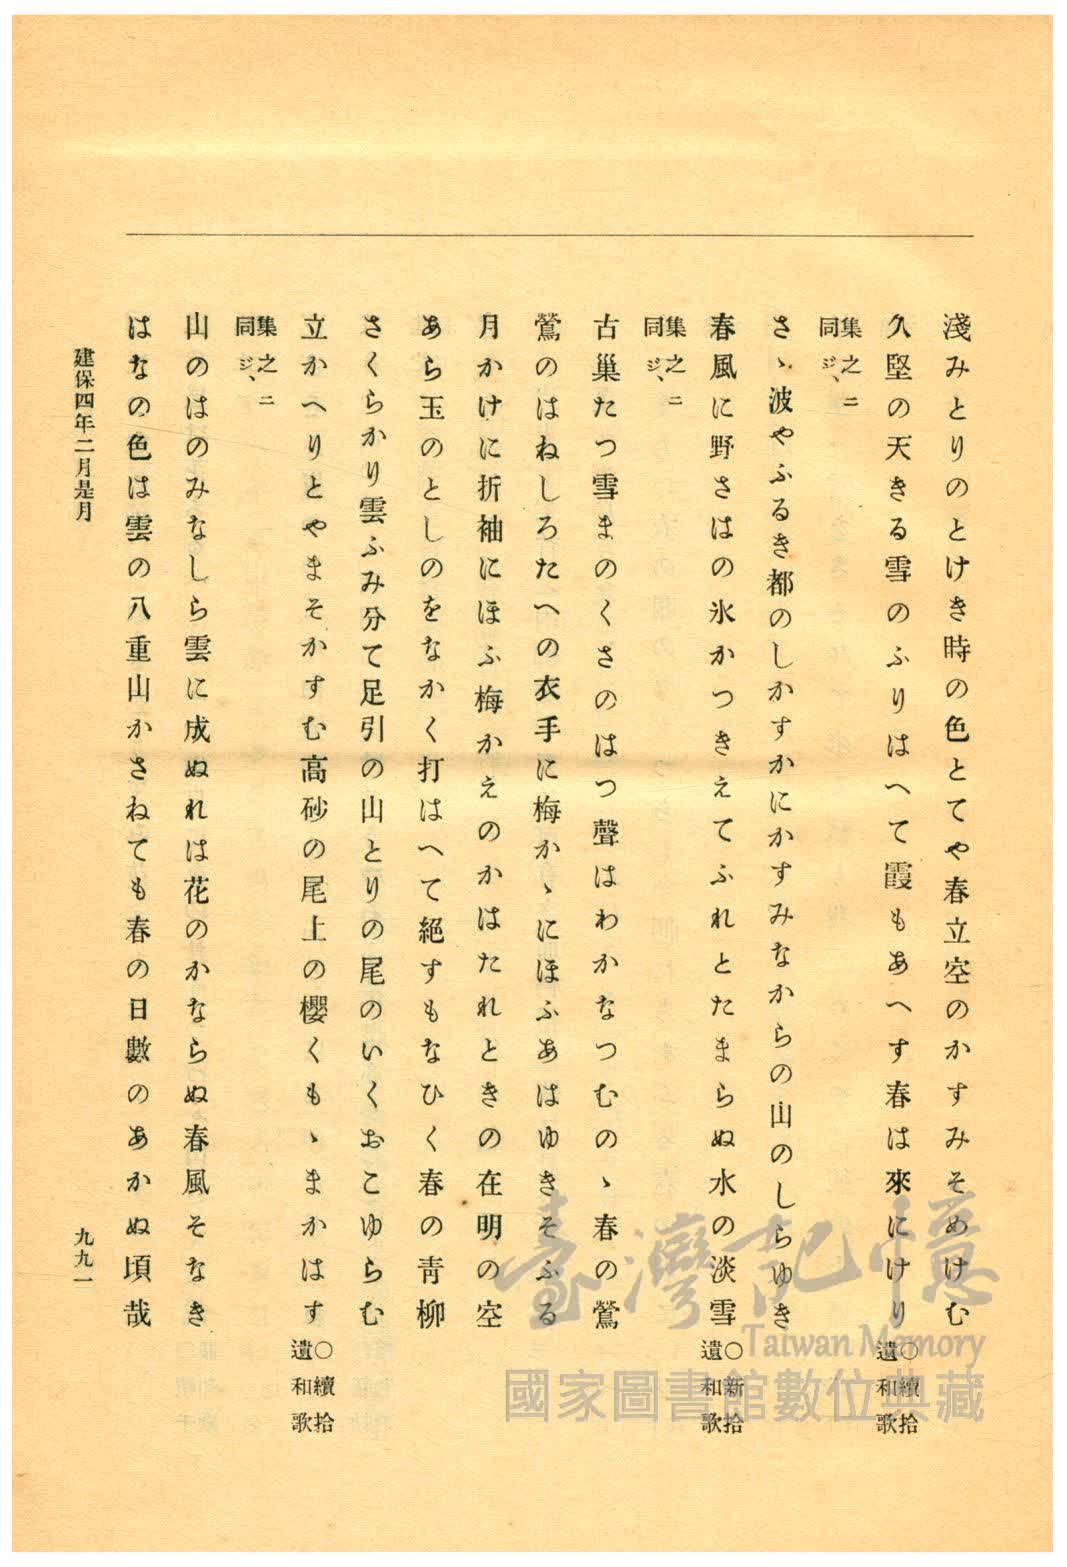 淺みとりのとけき時の色とてや春立空のかすみそめけむ
久堅の天きる雪のふりはへて霞もあへす春は來にけり〇續拾遺和歌
集之ニ同ジ、
さゝ波やふるき都のしかすかにかすみなからの山のしらゆき
春風に野さはの氷かつきえてふれとたまらぬ水の淡雪〇新拾遺和歌
集之ニ同ジ、
古巢たつ雪まのくさのはつ聲はわかなつむのゝ春の鶯
鶯のはねしろたへの衣手に梅かゝにほふあはゆきそふる
月かけに折袖にほふ梅かえのかはたれときの在明の空
あら玉のとしのをなかく打はへて絕すもなひく春の靑柳
さくらかり雲ふみ分て足引の山とりの尾のいくおこゆらむ
立かへりとやまそかすむ高砂の尾上の櫻くもゝまかはす〇續拾遺和歌
集之ニ同ジ、
山のはのみなしら雲に成ぬれは花のかならぬ春風そなき
はなの色は雲の八重山かさねても春の日數のあかぬ頃哉
建保四年二月是月
九九一
臺灣記憶
Taiwan Memory
國家圖書館數位典藏